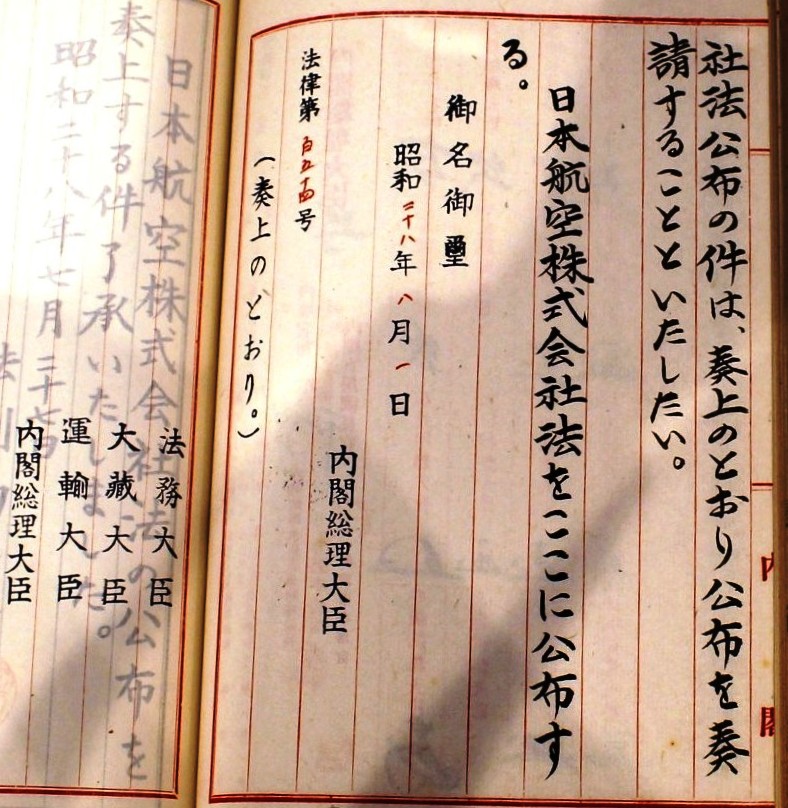 社法公布の件は、奏上のとおり公布を奏
請することといたしたい。
日本航空株式会社法をここに公布す
る。
御名御璽
昭和二十八年八月一日
内閣総理大臣
法律第百五十四号
（奏上のどおり。）
内閣
法務大臣
大藏大臣
運輸大臣
内閣総理大臣
日本航空株式会社法の公布を
奏上する件了承いたしました。
昭和二十八年七月三十